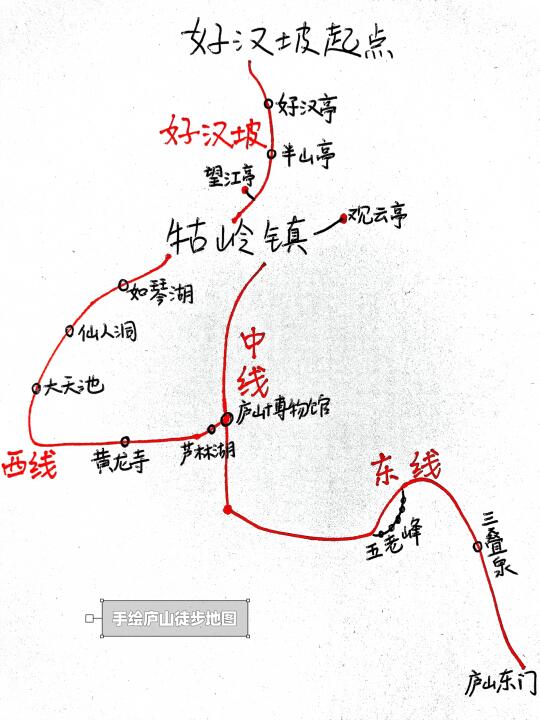 好汉坡起点
好汉亭
好汉坡
半山亭
望江亭
观云亭
牯岭镇
如琴湖
仙人洞
中线
大天池
庐山博物馆
芦林湖
黄龙寺
西线
东线
五老峰
三叠泉
手绘庐山徒步地图
庐山东门